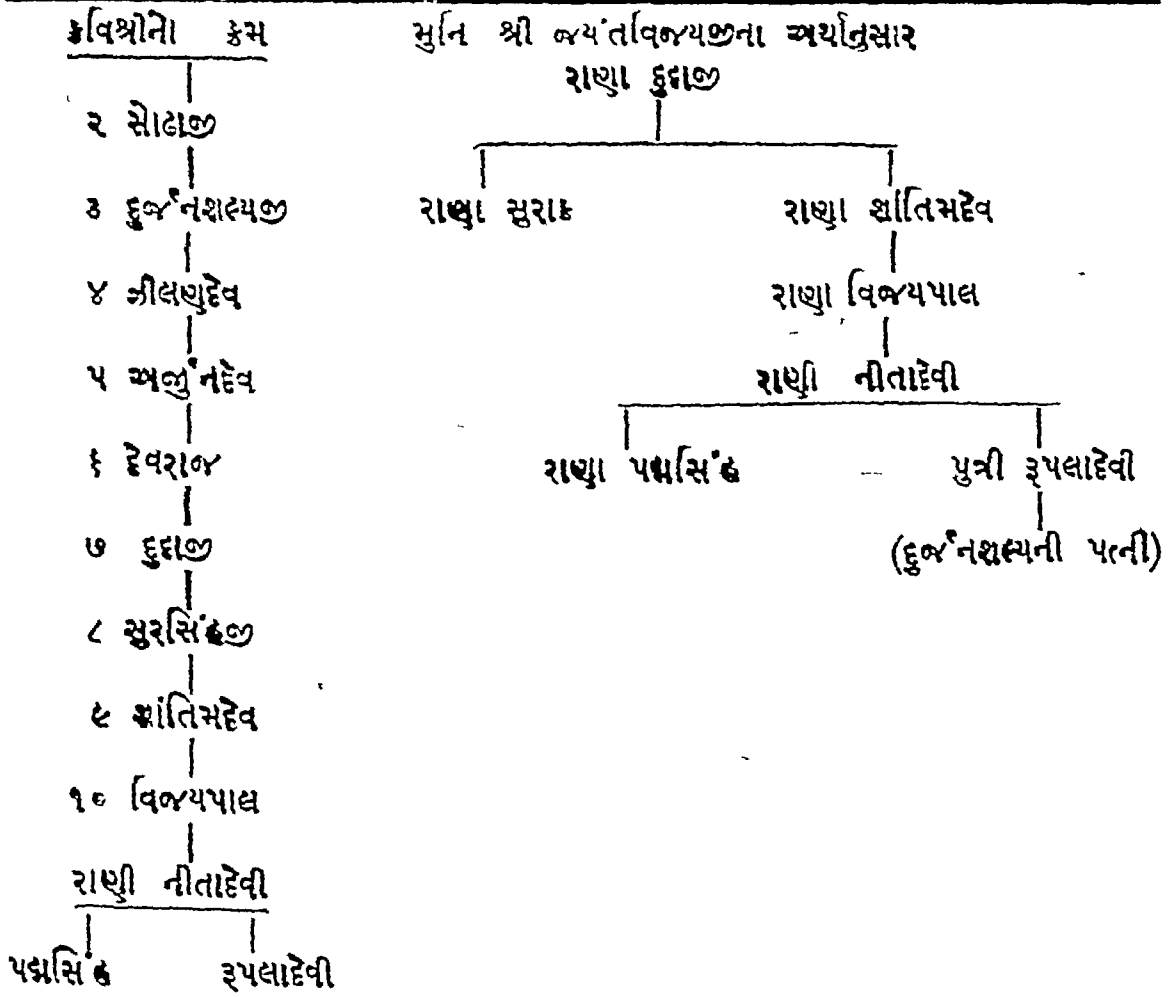 કવિશ્રીનો ક્રમ
૨ સોઢાજી
૩ દુર્જનશલ્યજી
૪ ઝીલણદેવ
૫ અર્જુનદેવ
૬ દેવરાજ
૭ દુદાજી
૮ સુરસિંહજી
૯ શાંતિમદેવ
૧૦ વિજયપાલ
રાણી નીતાદેવી
પદ્મસિંહ રૂપલાદેવી
મુનિ શ્રી જયંતવિજયજીના અર્થાનુસાર
રાણા દુદાજી
રાણા સુરાક રાણા શાંતિમદેવ
રાણા વિજયપાલ
રાણી નીતાદેવી
રાણા પદ્મસિંહ પુત્રી રૂપલાદેવી
(દુર્જનશલ્યની પત્ની)